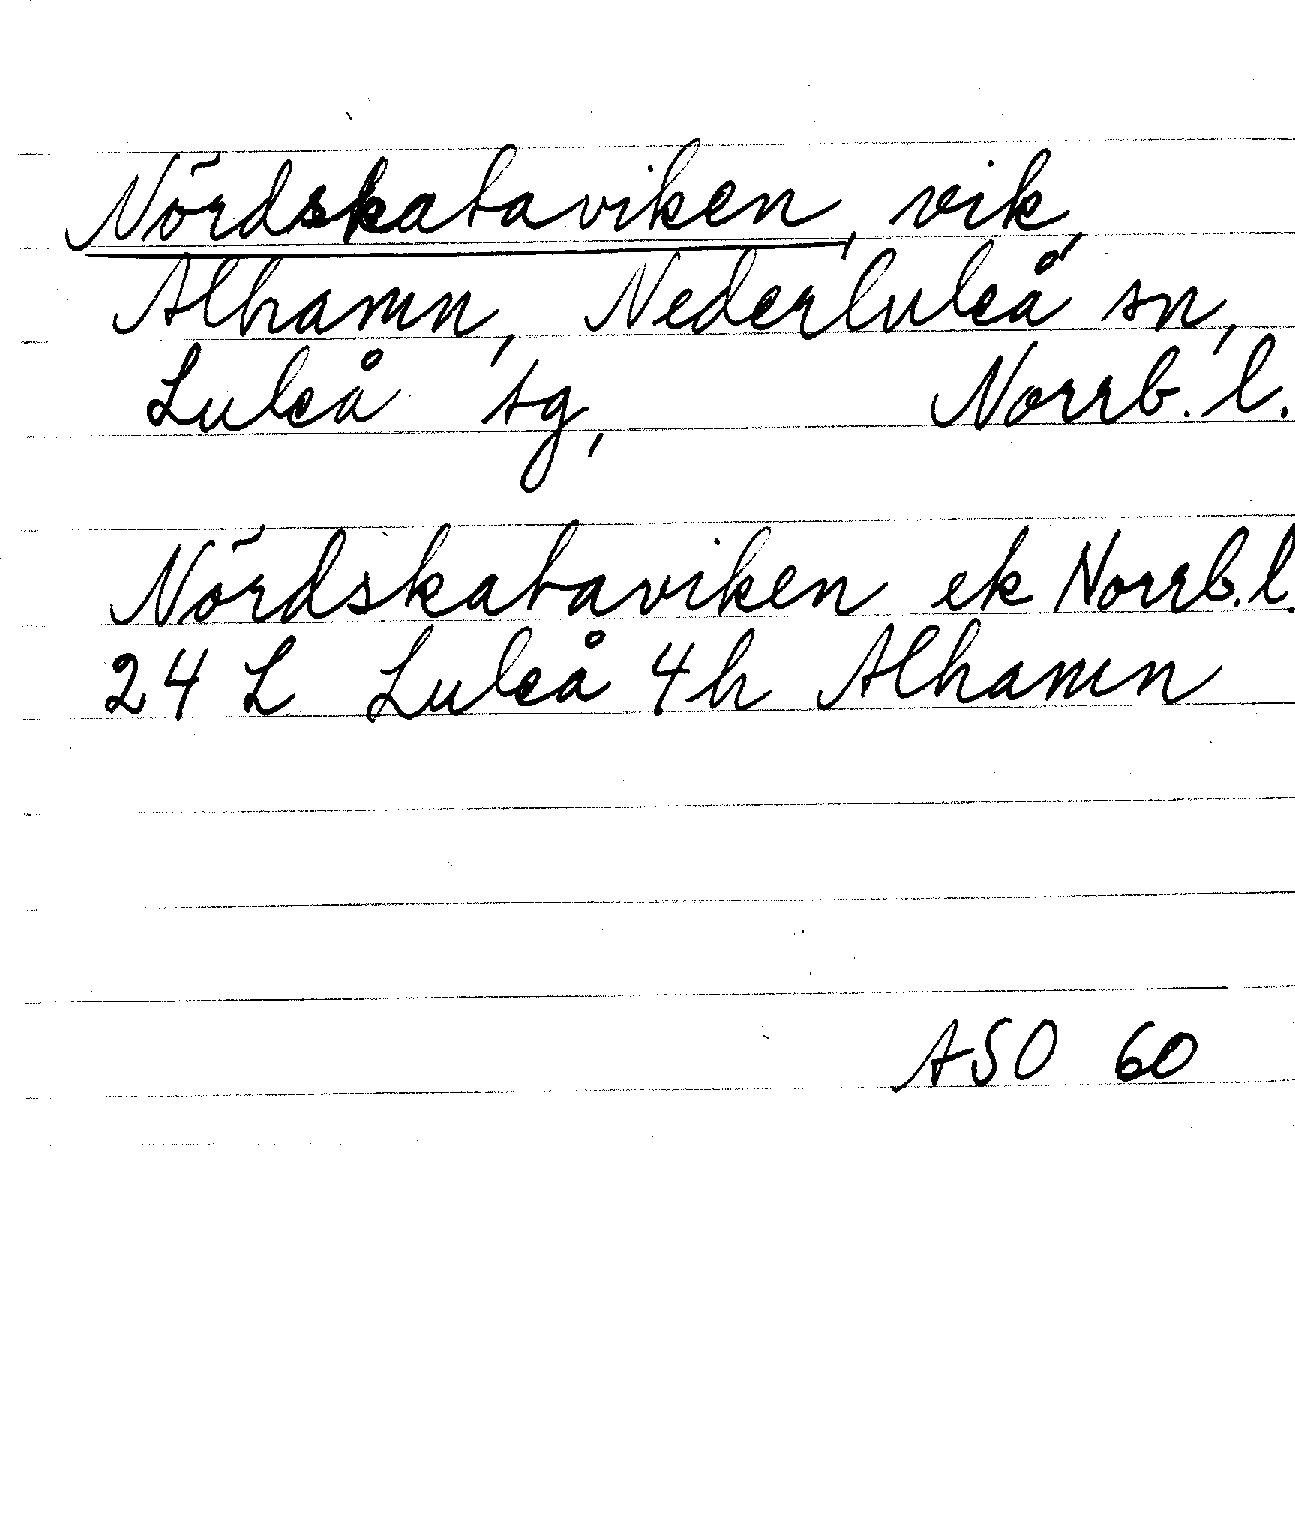 Nördskataviken, vik,
Alhamn, Nederluleå sn,
Luleå sg, Norrb. l.
Nördskataviken ek Norrb. l.
24 L Luleå 4h Alhamn
ASO 60